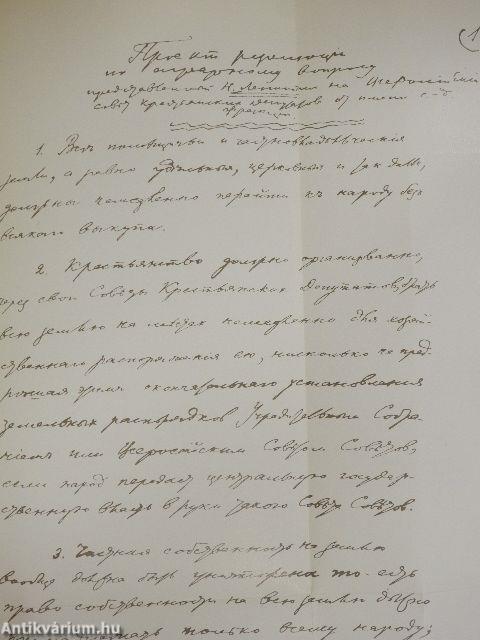 1
Проект резолюции
по аграрному вопросу
представленной Н. Лениным на Всероссийский
совет крестьянских депутатов от имени с-д
фракции
1. Все помещичьи и частновладельческия
земли, а равно удельныя, церковныя и так далее,
должны немедленно перейти къ народу безъ
всякого выкупа.
2. Крестьянство должно организованно,
через свои Советы Крестьянских Депутатов, брать
всю землю на местах немедленно для хозяй
ственнаго распоряжения ею, нисколько не пред
решая этим окончательнаго установления
земельных распорядков Учредительным Собра
нием или Всероссийским Советом Советов,
если народ передаст центральную государ
ственную власть в руки такого Совета Советов.
3. Частная собственность на землю
вообще должна быть уничтожена то-есть
право собственности на всю землю должно
только всему народу;
Antikvárium.hu